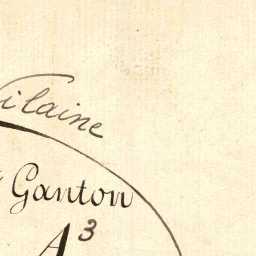 ilaine
Ganton
A³